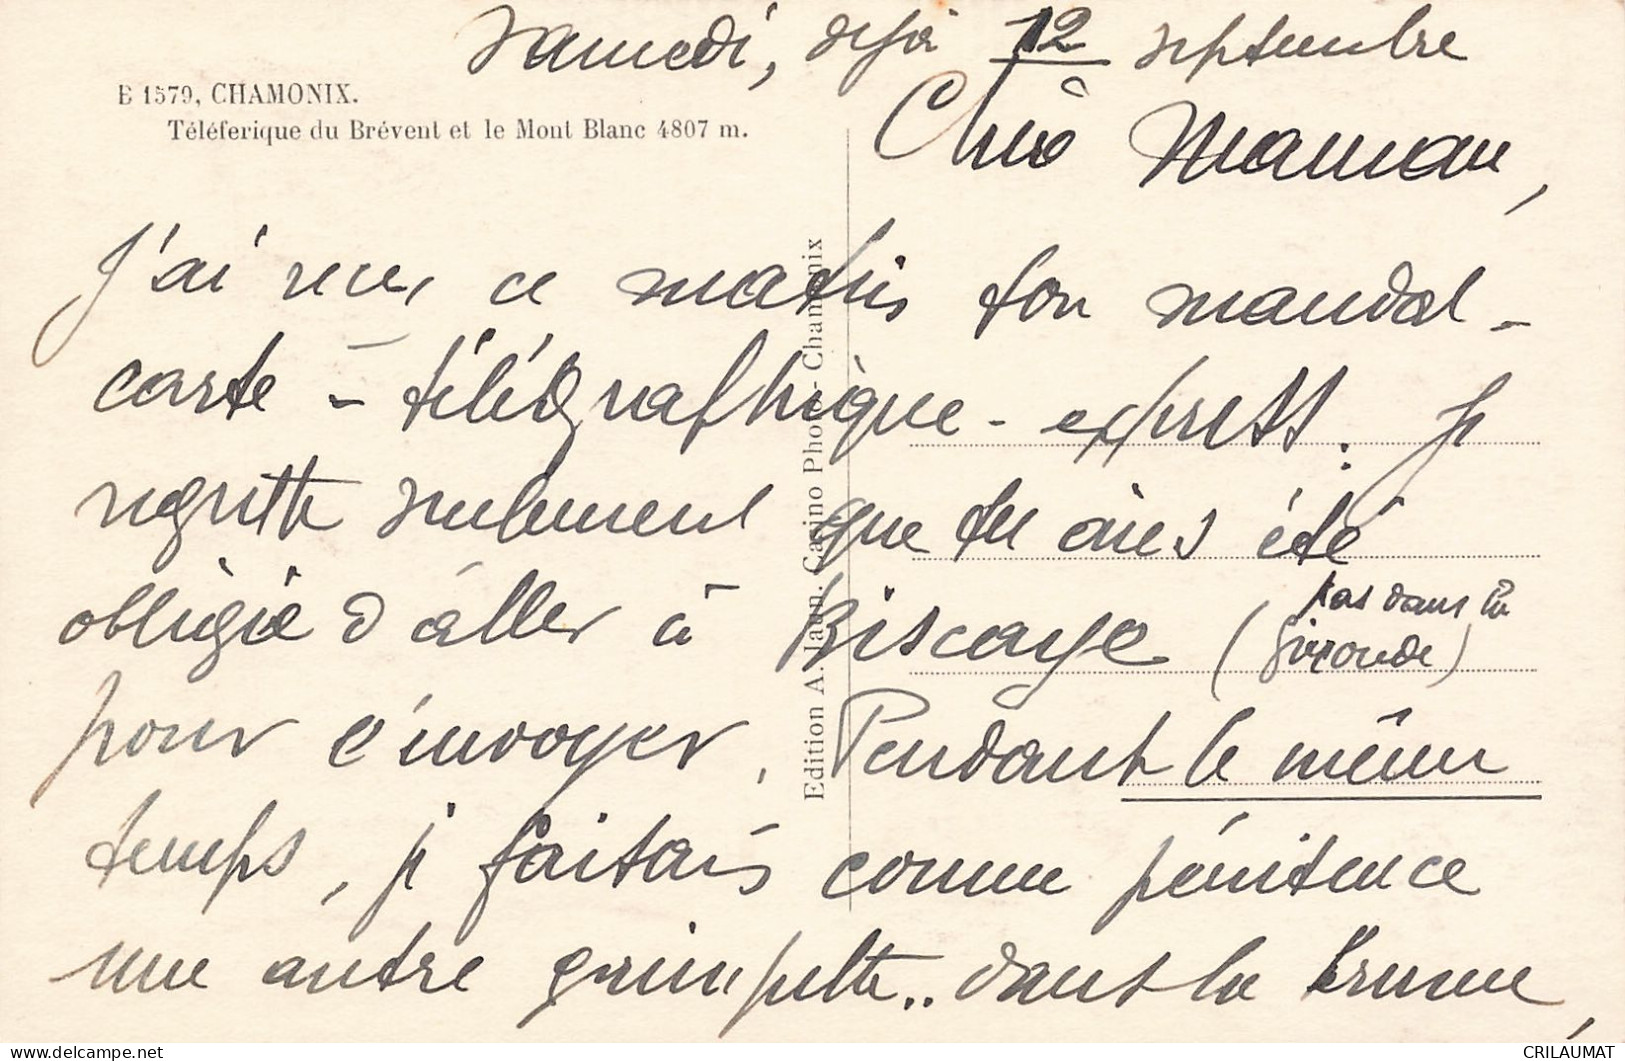 Samedi, déjà 12 septembre
E 1579, CHAMONIX.
Téléferique du Brévent et le Mont Blanc 4807 m.
Chère Maman,
J'ai reçu, ce matin ton mandat -
carte - télégraphique - express. Je
regrette seulement que tu aies été
obligée d'aller à Biscaye (pas dans la
Gironde)
pour l'envoyer. Pendant le même
temps, je faisais comme pénitence
une autre grimpette.. dans la brume,
Edition A. Jaun. Casino Photo - Chamonix
CRILAUMAT
delcampe.net